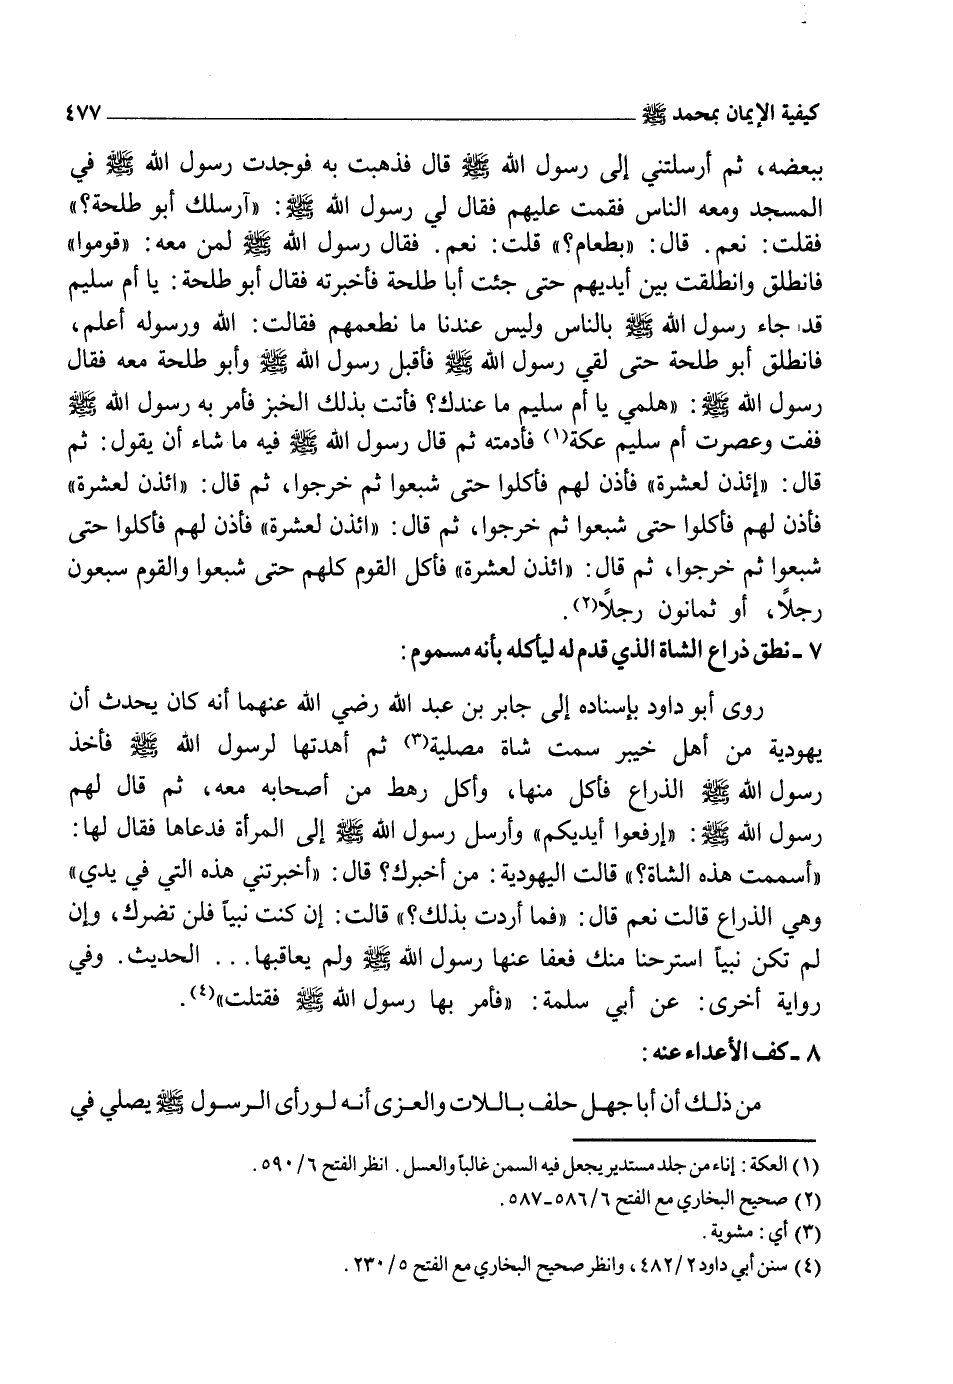 كيفية الإيمان بمحمد ﷺ ٤٧٧
ببعضه، ثم أرسلتني إلى رسول الله ﷺ قال فذهبت به فوجدت رسول الله ﷺ في
المسجد ومعه الناس فقمت عليهم فقال لي رسول الله ﷺ: «آرسلك أبو طلحة؟»
فقلت: نعم. قال: «بطعام؟» قلت: نعم. فقال رسول الله ﷺ لمن معه: «قوموا»
فانطلق وانطلقت بين أيديهم حتى جئت أبا طلحة فأخبرته فقال أبو طلحة: يا أم سليم
قد جاء رسول الله ﷺ بالناس وليس عندنا ما نطعمهم فقالت: الله ورسوله أعلم،
فانطلق أبو طلحة حتى لقي رسول الله ﷺ فأقبل رسول الله ﷺ وأبو طلحة معه فقال
رسول الله ﷺ: «هلمي يا أم سليم ما عندك؟ فأتت بذلك الخبز فأمر به رسول الله ﷺ
ففت وعصرت أم سليم عكة(١) فأدمته ثم قال رسول الله ﷺ فيه ما شاء أن يقول: ثم
قال: «إئذن لعشرة» فأذن لهم فأكلوا حتى شبعوا ثم خرجوا، ثم قال: «ائذن لعشرة»
فأذن لهم فأكلوا حتى شبعوا ثم خرجوا، ثم قال: «ائذن لعشرة» فأذن لهم فأكلوا حتى
شبعوا ثم خرجوا، ثم قال: «ائذن لعشرة» فأكل القوم كلهم حتى شبعوا والقوم سبعون
رجلاً، أو ثمانون رجلاً(٢).
٧ ـ نطق ذراع الشاة الذي قدم له ليأكله بأنه مسموم:
روى أبو داود بإسناده إلى جابر بن عبد الله رضي الله عنهما أنه كان يحدث أن
يهودية من أهل خيبر سمت شاة مصلية(٣) ثم أهدتها لرسول الله ﷺ فأخذ
رسول الله ﷺ الذراع فأكل منها، وأكل رهط من أصحابه معه، ثم قال لهم
رسول الله ﷺ: «إرفعوا أيديكم» وأرسل رسول الله ﷺ إلى المرأة فدعاها فقال لها:
«أسممت هذه الشاة؟» قالت اليهودية: من أخبرك؟ قال: «أخبرتني هذه التي في يدي»
وهي الذراع قالت نعم قال: «فما أردت بذلك؟» قالت: إن كنت نبياً فلن تضرك، وإن
لم تكن نبياً استرحنا منك فعفا عنها رسول الله ﷺ ولم يعاقبها... الحديث. وفي
رواية أخرى: عن أبي سلمة: «فأمر بها رسول الله ﷺ فقتلت»(٤).
٨ ـ كف الأعداء عنه:
من ذلك أن أبا جهل حلف باللات والعزى أنه لو رأى الرسول ﷺ يصلي في
(١) العكة: إناء من جلد مستدير يجعل فيه السمن غالباً والعسل. انظر الفتح ٦/ ٥٩٠.
(٢) صحيح البخاري مع الفتح ٦/ ٥٨٦ـ٥٨٧.
(٣) أي: مشوية.
(٤) سنن أبي داود ٢/ ٤٨٢، وانظر صحيح البخاري مع الفتح ٥/ ٢٣٠.